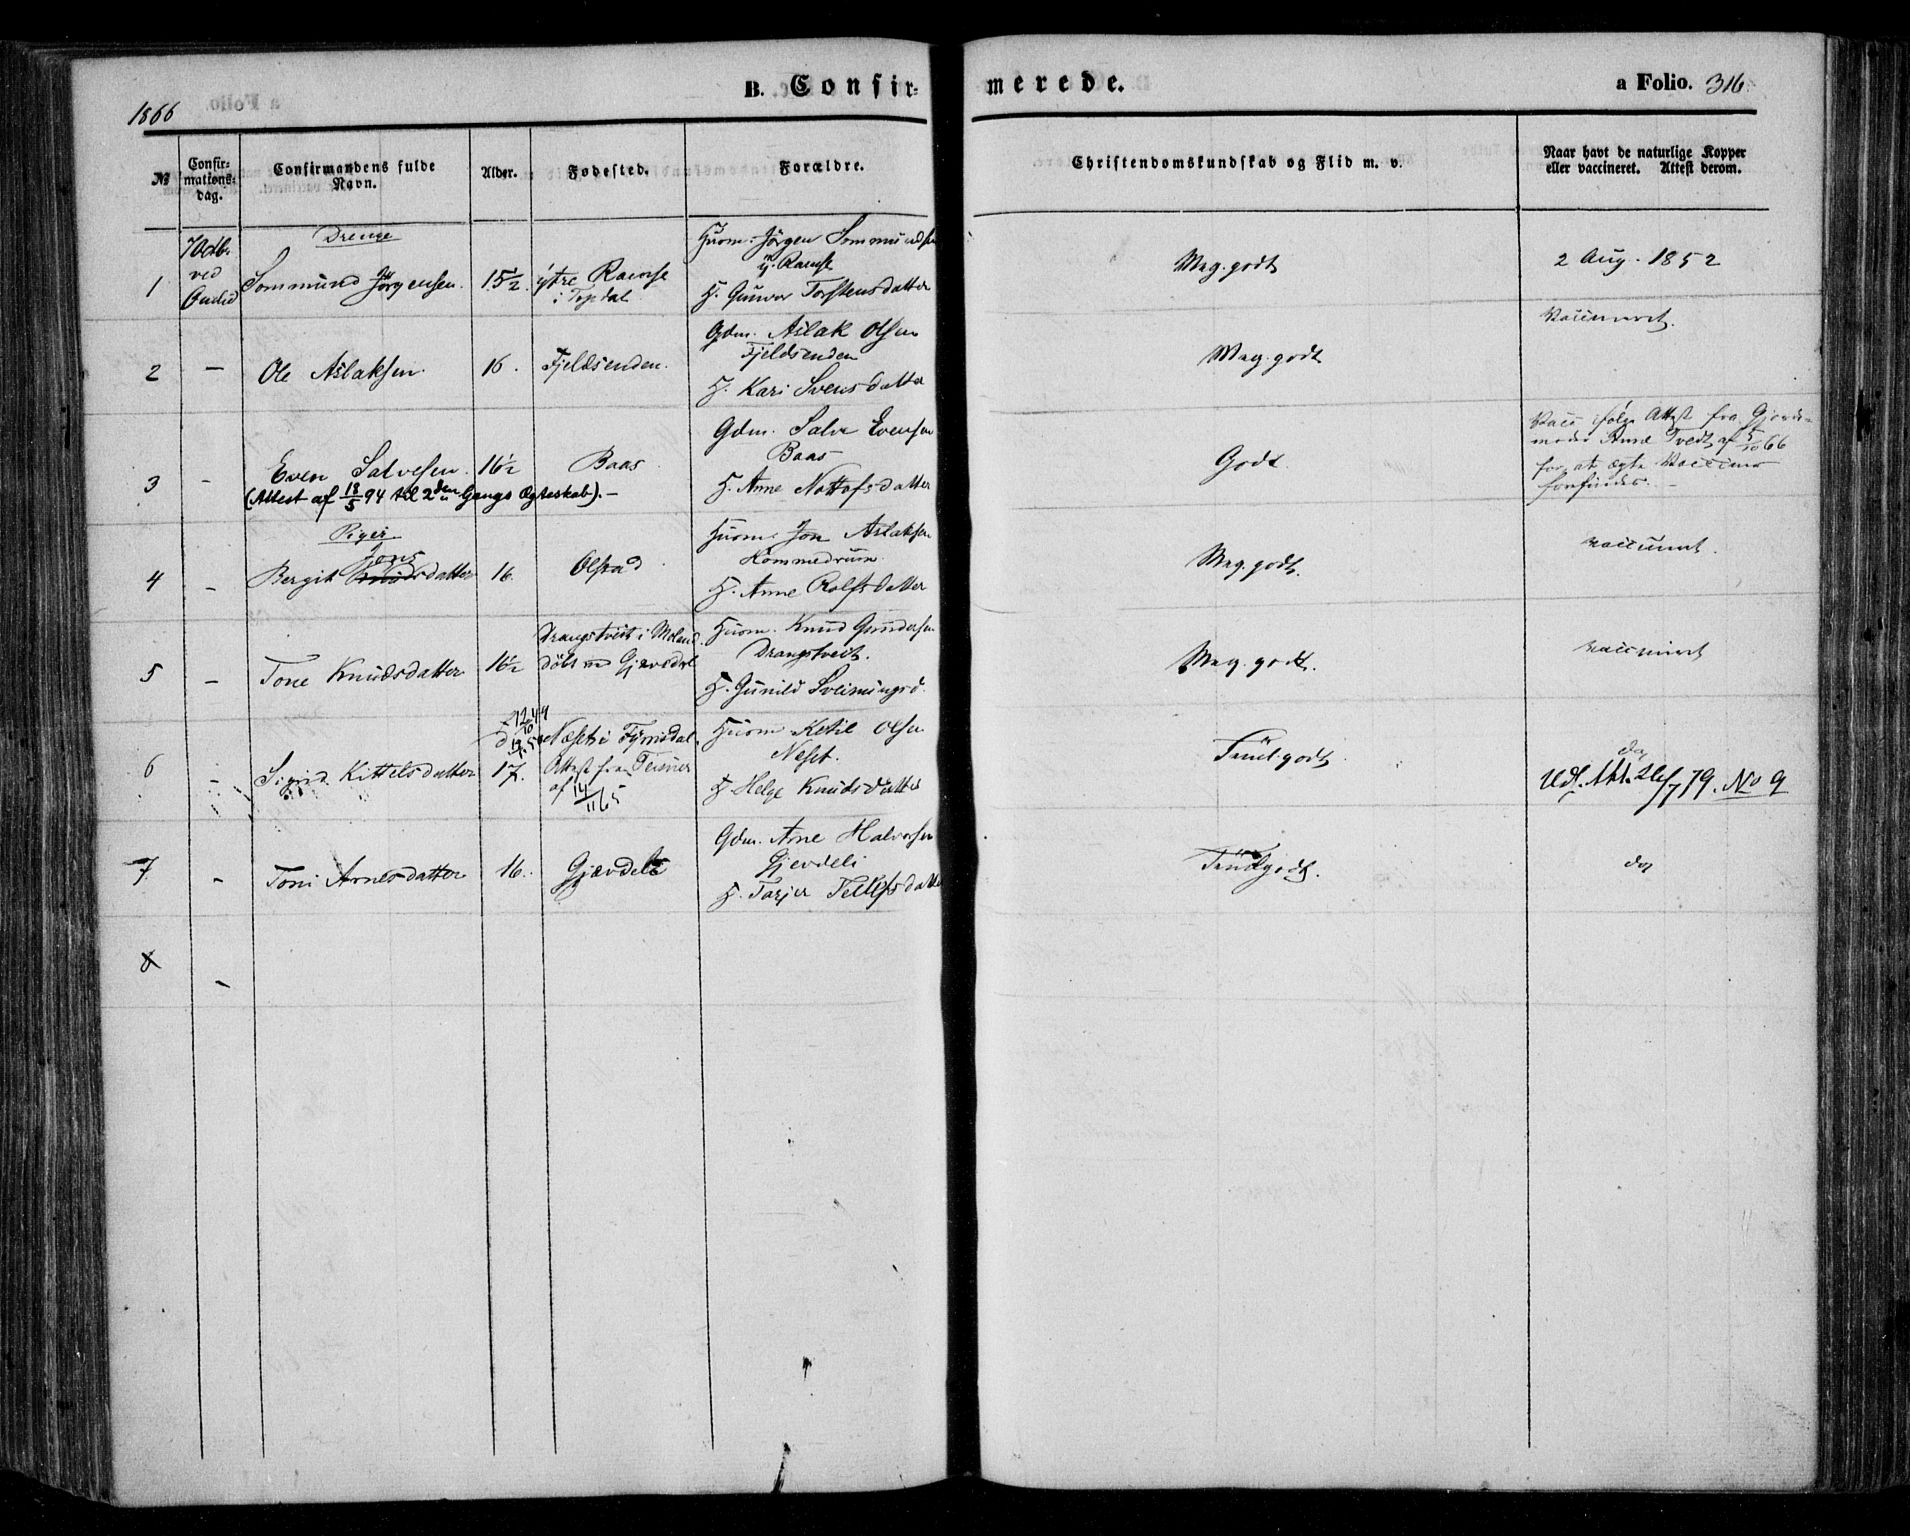 1866
B. Confir-
merede.
a Folio. 316
№
Confir-
mations-
dag.
Confirmandens fulde
Navn.
Alder.
Fødested.
Forældre.
Christendomskundskab og Flid m. v.
Naar havt de naturlige Kopper
eller vaccineret. Attest derom.
Drenge
1
7 Octb.
ved
Sommund Jörgensen.
15½.
ytre Ramse
i Topdal
Huom. Jörgen Sommundsen
y. Ramse
H. Gunvor Torstensdatter
Meg. godt
2 Aug. 1852
2
–
Ole Aslaksen.
16.
Fjeldsenden.
Gdm. Aslak Olsen
Fjeldsenden
H. Kari Svensdatter
Meg. godt
Vaccineret.
3
–
Even Salvesen.
(Attest af 18/5 94 til 2den Gangs Ægteskab). –
16½
Baas
Gdm. Salve Evensen
Baas
H. Anne Nottofsdatter
Godt.
Vacc ifølge Attest fra Gjorde-
moder Anne Tvedt af 5/10 66
for at ægte Vaccine
forfindes. –
Piger
4
–
Jons
Bergit Knudsdatter
16.
Olstad
Huom. Jon Aslaksen
Kommedrum
H. Anne Rolfsdatter
Meg. godt.
vaccineret.
5
–
Tone Knudsdatter
16½
Drangstveit i Moland
döbt Gjævsdal
Huom. Knud Gundersen
Drangstveit.
H. Gunild Sveinungsd.
Meg. godt.
vaccineret
6
–
Sigrid Kittelsdatter
17.
Næset i Fyrrisdal
Attest fra
af 14/11 65
Huom Ketil Olsen
Neset.
H Helge Knudsdatter
Teml. godt
do
Udf. Att. 26/7 79. No 9
7
–
Toni Arnesdatter
16.
Gjævdeli
Gdm. Arne Halvorsen
Gjevdeli
H. Tarjer Tellefsdatter
Temlgodt.
do
8
–